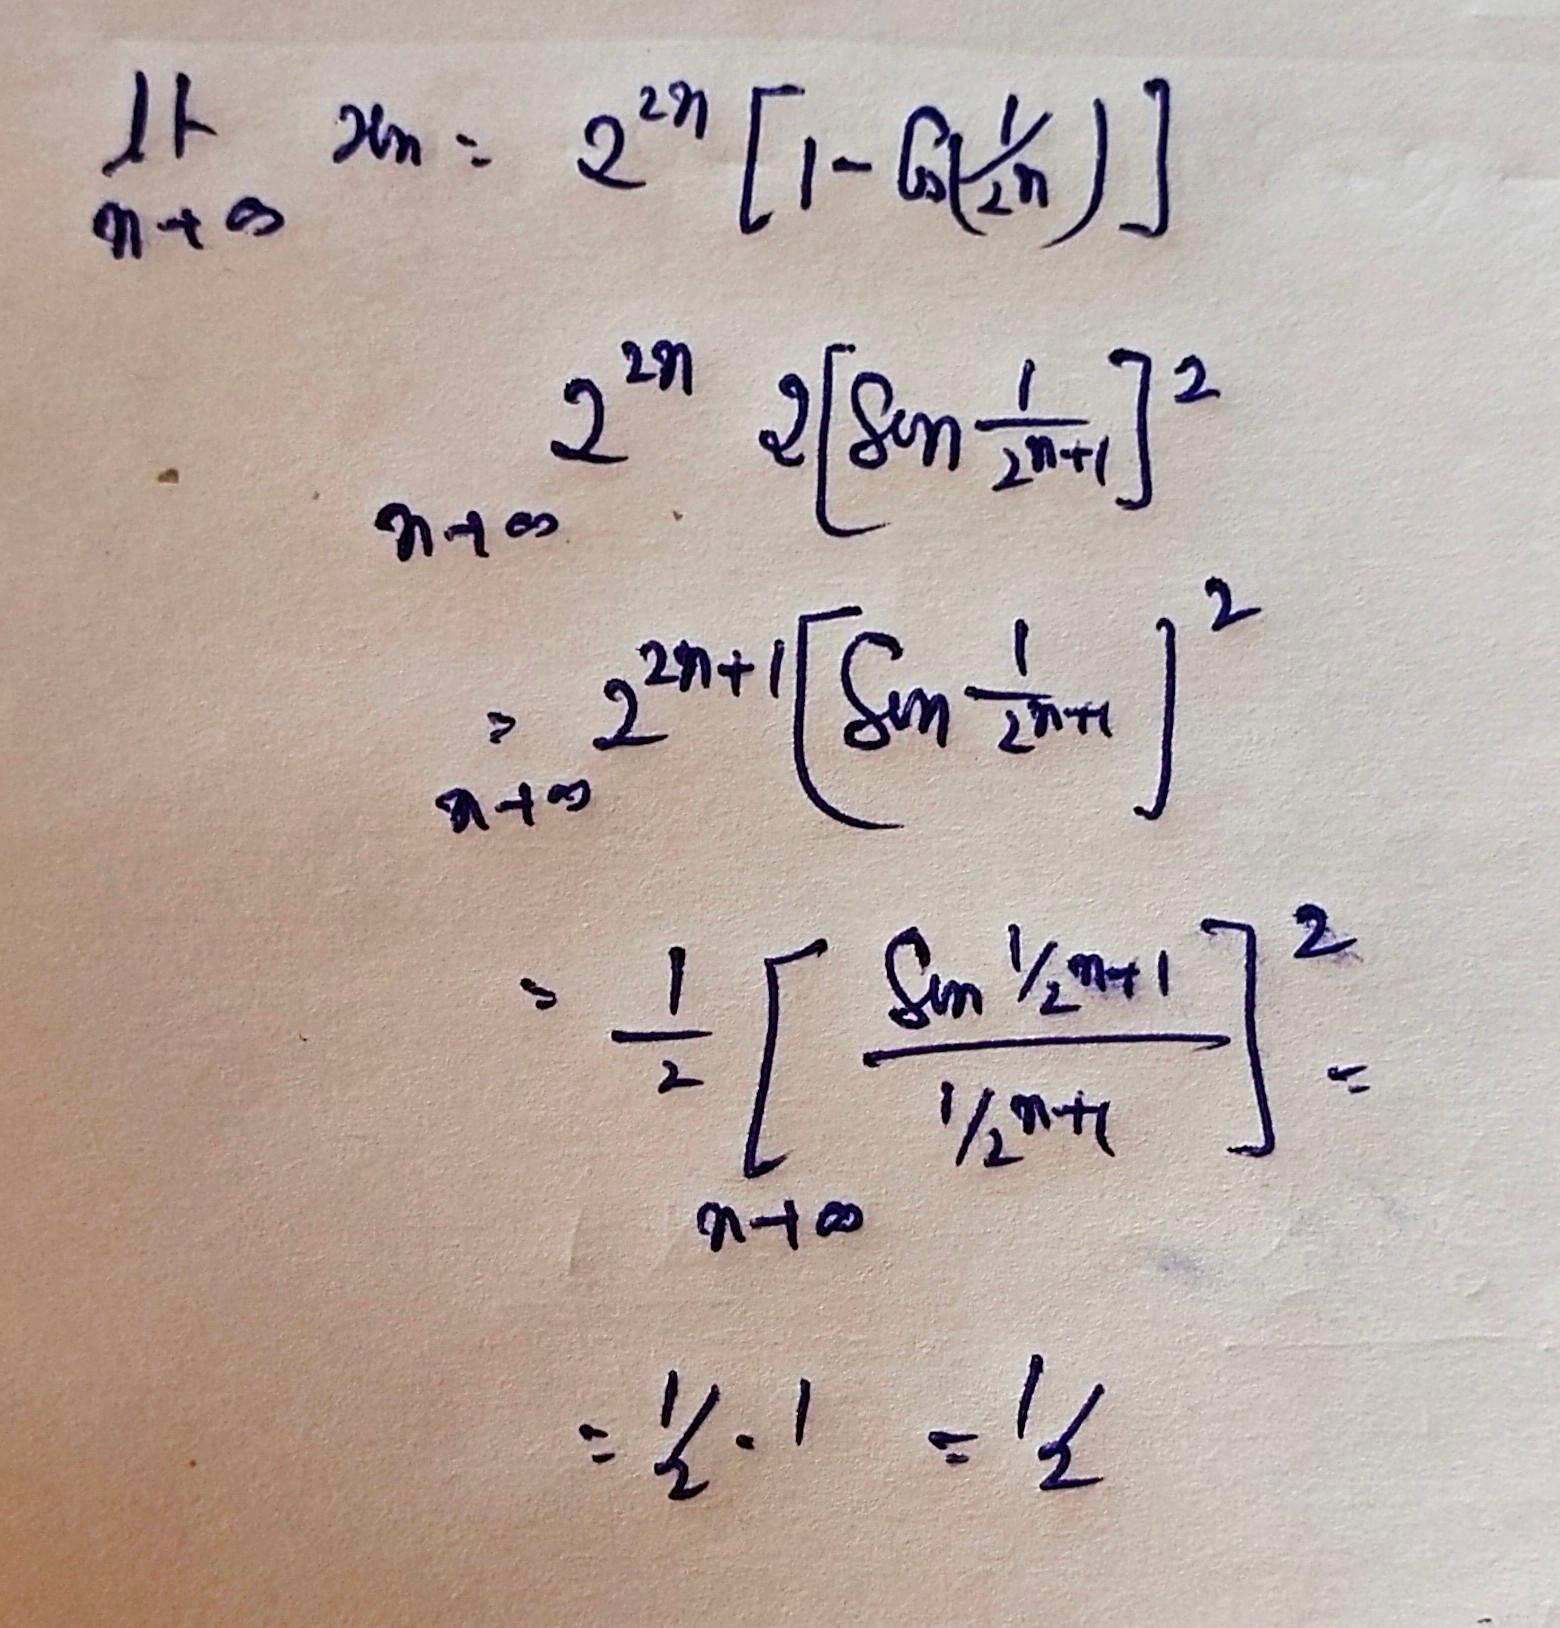 lt n→∞ xn = 2^{2n} [1 - Cos(1/2^n)]
2^{2n} 2[Sin 1/2^{n+1}]^2
n→∞
= 2^{2n+1} [Sin 1/2^{n+1}]^2
n→∞
= 1/2 [Sin 1/2^{n+1} / 1/2^{n+1}]^2 =
n→∞
= 1/2 . 1 = 1/2